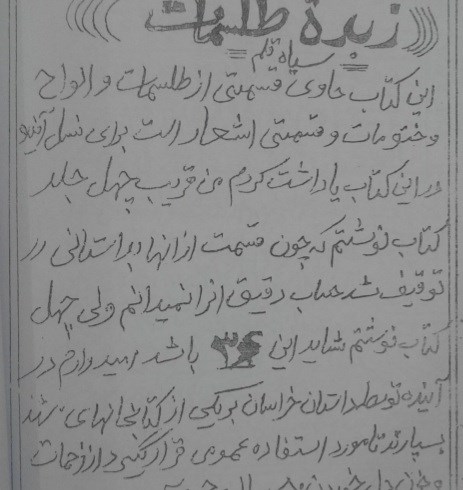 زبدة طلسمات
سیاه قلم
این کتاب حاوی قسمتی از طلسمات و الواح
و ختومات و قسمتی اشعار است برای نسل آینده
در این کتاب یاداشت کردم من قریب چهل جلد
کتاب نوشتم که چون قسمت از انها در
توقیف شد حساب دقیق انرا نمیدانم ولی چهل
کتاب نوشتم شاید این ۳۶ باشد امیدوارم در
آینده توسط خراسان بریکی از کتابخانهای
بسپارند تا مورد استفاده عمومی قرار گیرد از زحمات